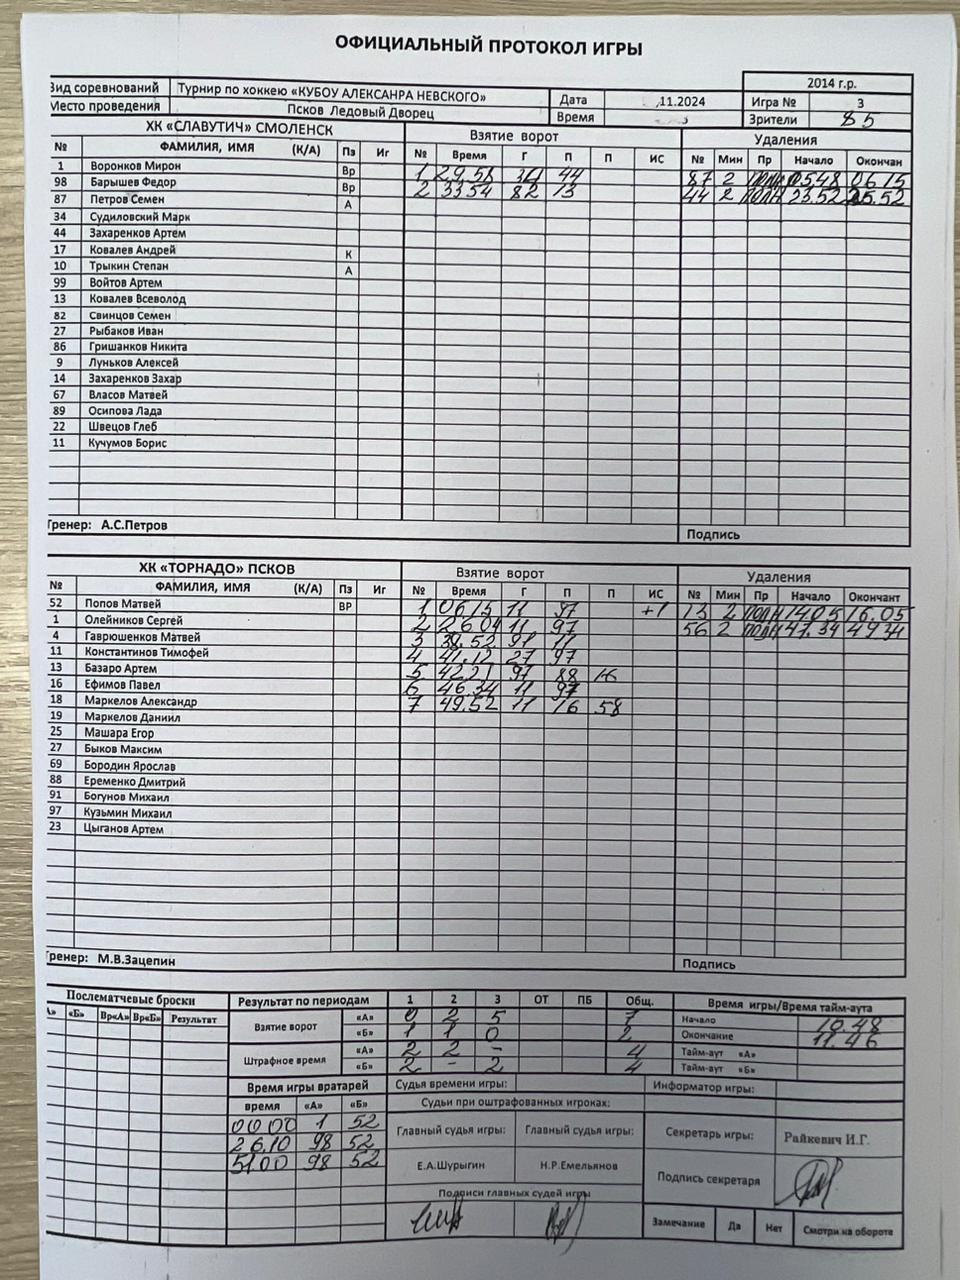 ОФИЦИАЛЬНЫЙ ПРОТОКОЛ ИГРЫ
2014 г.р.
Вид соревнований Турнир по хоккею «КУБОУ АЛЕКСАНРА НЕВСКОГО» Дата .11.2024 Игра № 3
Место проведения Псков Ледовый Дворец Время Зрители 85
ХК «СЛАВУТИЧ» СМОЛЕНСК Взятие ворот Удаления
№ ФАМИЛИЯ, ИМЯ (К/А) Пз Иг № Время Г П П ИС № Мин Пр Начало Окончан
1 Воронков Мирон Вр 1 29.58 34 44 87 2 05.48 06.15
98 Барышев Федор Вр 2 33.54 82 13 44 2 23.52 25.52
87 Петров Семен А
34 Судиловский Марк
44 Захаренков Артем
17 Ковалев Андрей К
10 Трыкин Степан А
99 Войтов Артем
13 Ковалев Всеволод
82 Свинцов Семен
27 Рыбаков Иван
86 Гришанков Никита
9 Луньков Алексей
14 Захаренков Захар
67 Власов Матвей
89 Осипова Лада
22 Швецов Глеб
11 Кучумов Борис
Тренер: А.С.Петров Подпись
ХК «ТОРНАДО» ПСКОВ Взятие ворот Удаления
№ ФАМИЛИЯ, ИМЯ (К/А) Пз Иг № Время Г П П ИС № Мин Пр Начало Окончант
52 Попов Матвей ВР 1 06.15 11 97 +1 13 2 14.05 16.05
1 Олейников Сергей 2 26.04 11 97 56 2 47.34 49.34
4 Гаврюшенков Матвей 3 38.52 91 11
11 Константинов Тимофей 4 41.12 27 97
13 Базаро Артем 5 42.21 97 88 16
16 Ефимов Павел 6 46.34 11 97
18 Маркелов Александр 7 49.52 11 16 58
19 Маркелов Даниил
25 Машара Егор
27 Быков Максим
69 Бородин Ярослав
88 Еременко Дмитрий
91 Богунов Михаил
97 Кузьмин Михаил
23 Цыганов Артем
Тренер: М.В.Зацепин Подпись
Послематчевые броски Результат по периодам 1 2 3 ОТ ПБ Общ. Время игры/Время тайм-аута
«А» «Б» Вр«А» Вр«Б» Результат
Взятие ворот «А» 0 2 5 7 Начало 10.48
«Б» 1 1 0 2 Окончание 11.46
Штрафное время «А» 2 2 - 4 Тайм-аут «А»
«Б» 2 - 2 4 Тайм-аут «Б»
Время игры вратарей Судья времени игры: Информатор игры:
время «А» «Б» Судьи при оштрафованных игроках:
00.00 1 52 Главный судья игры: Главный судья игры: Секретарь игры: Райкевич И.Г.
26.10 98 52
51.00 98 52 Е.А.Шурыгин Н.Р.Емельянов Подпись секретаря
Подписи главных судей игры
Замечание Да Нет Смотри на обороте